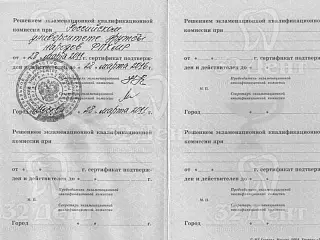 Решением экзаменационной квалификационной
комиссии при Российском
университете дружбы
народов
от « 28 » марта 2011 г. сертификат подтверж-
ден и действителен до « 28 » марта 2016 г.
Председатель экзаменационной
квалификационной комиссии
М. П.
Секретарь экзаменационной
квалификационной комиссии
Город « 28 » марта 2011 г.
Решением экзаменационной квалификационной
комиссии при
от « » г. сертификат подтверж-
ден и действителен до « » г.
Председатель экзаменационной
квалификационной комиссии
М. П.
Секретарь экзаменационной
квалификационной комиссии
Город « » г.
Решением экзаменационной квалификационной
комиссии при
от « » г. сертификат подтверж-
ден и действителен до « » г.
Председатель экзаменационной
квалификационной комиссии
М. П.
Секретарь экзаменационной
квалификационной комиссии
Город « » г.
Решением экзаменационной квалификационной
комиссии при
от « » г. сертификат подтверж-
ден и действителен до « » г.
Председатель экзаменационной
квалификационной комиссии
М. П.
Секретарь экзаменационной
квалификационной комиссии
Город « » г.